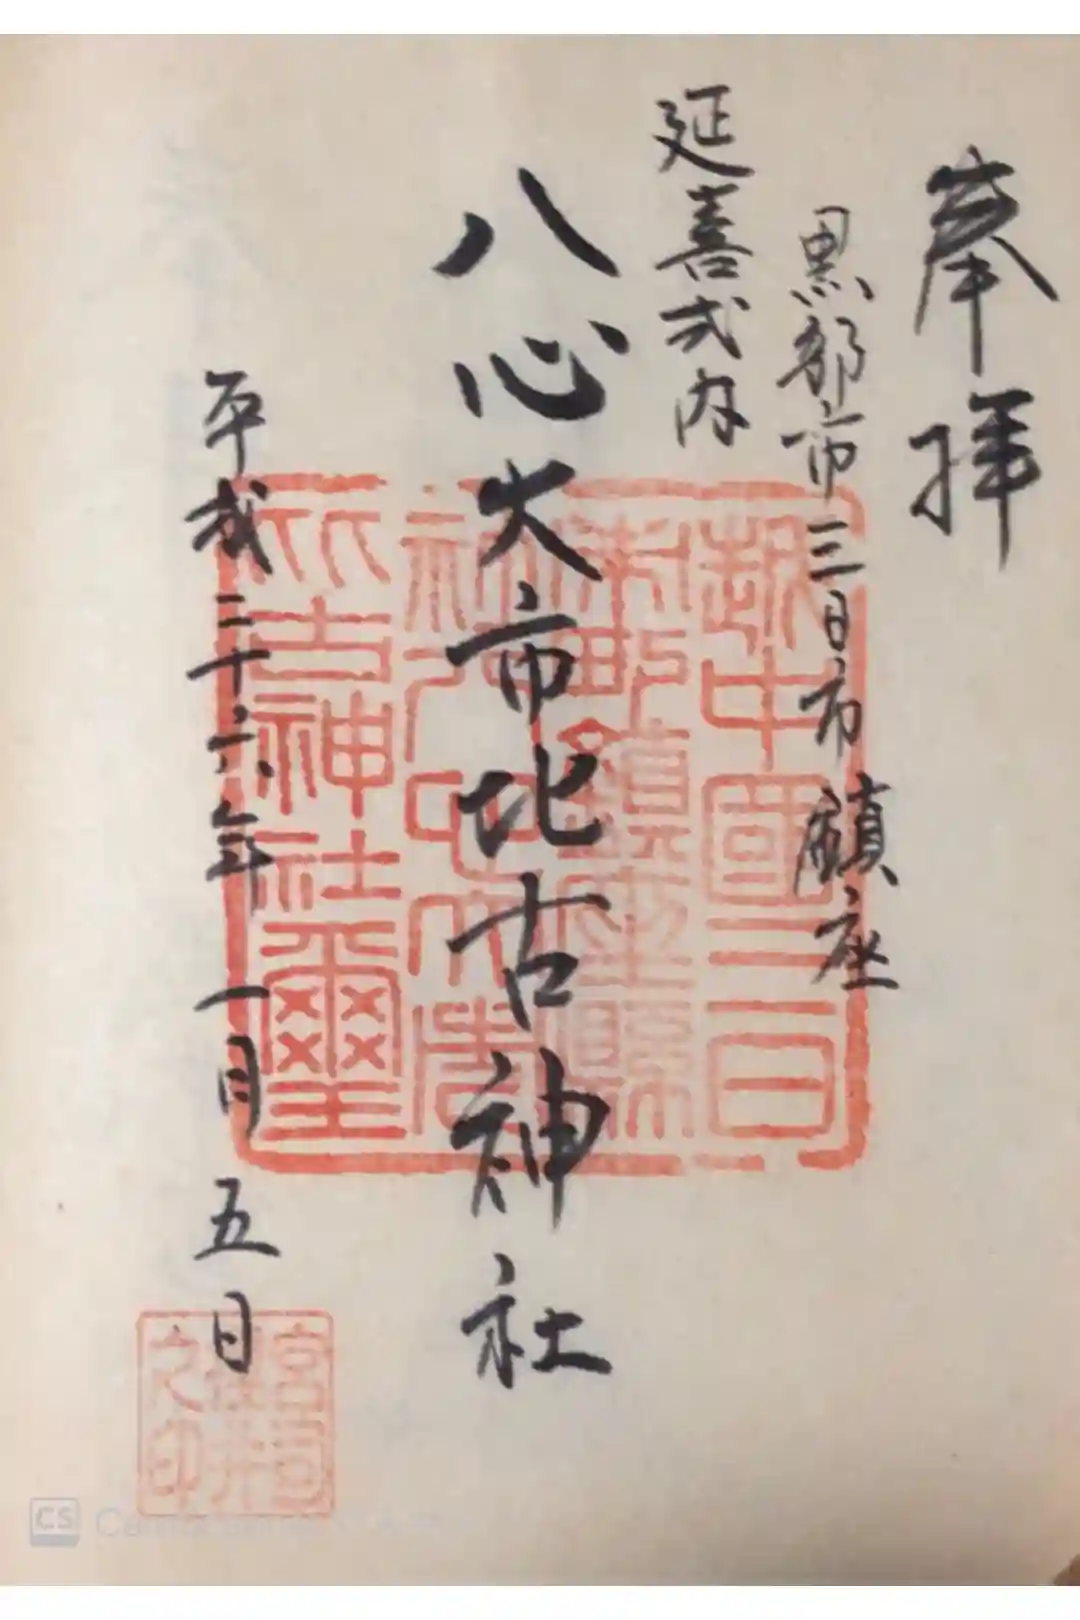 奉拝
黒部市三日市鎮座
延喜式内
八心大市比古神社
平成二十六年一月五日
越中國三日
市郷鎮座縣
社八心大市
比古神社璽
宮司
之印
CS CamScanner